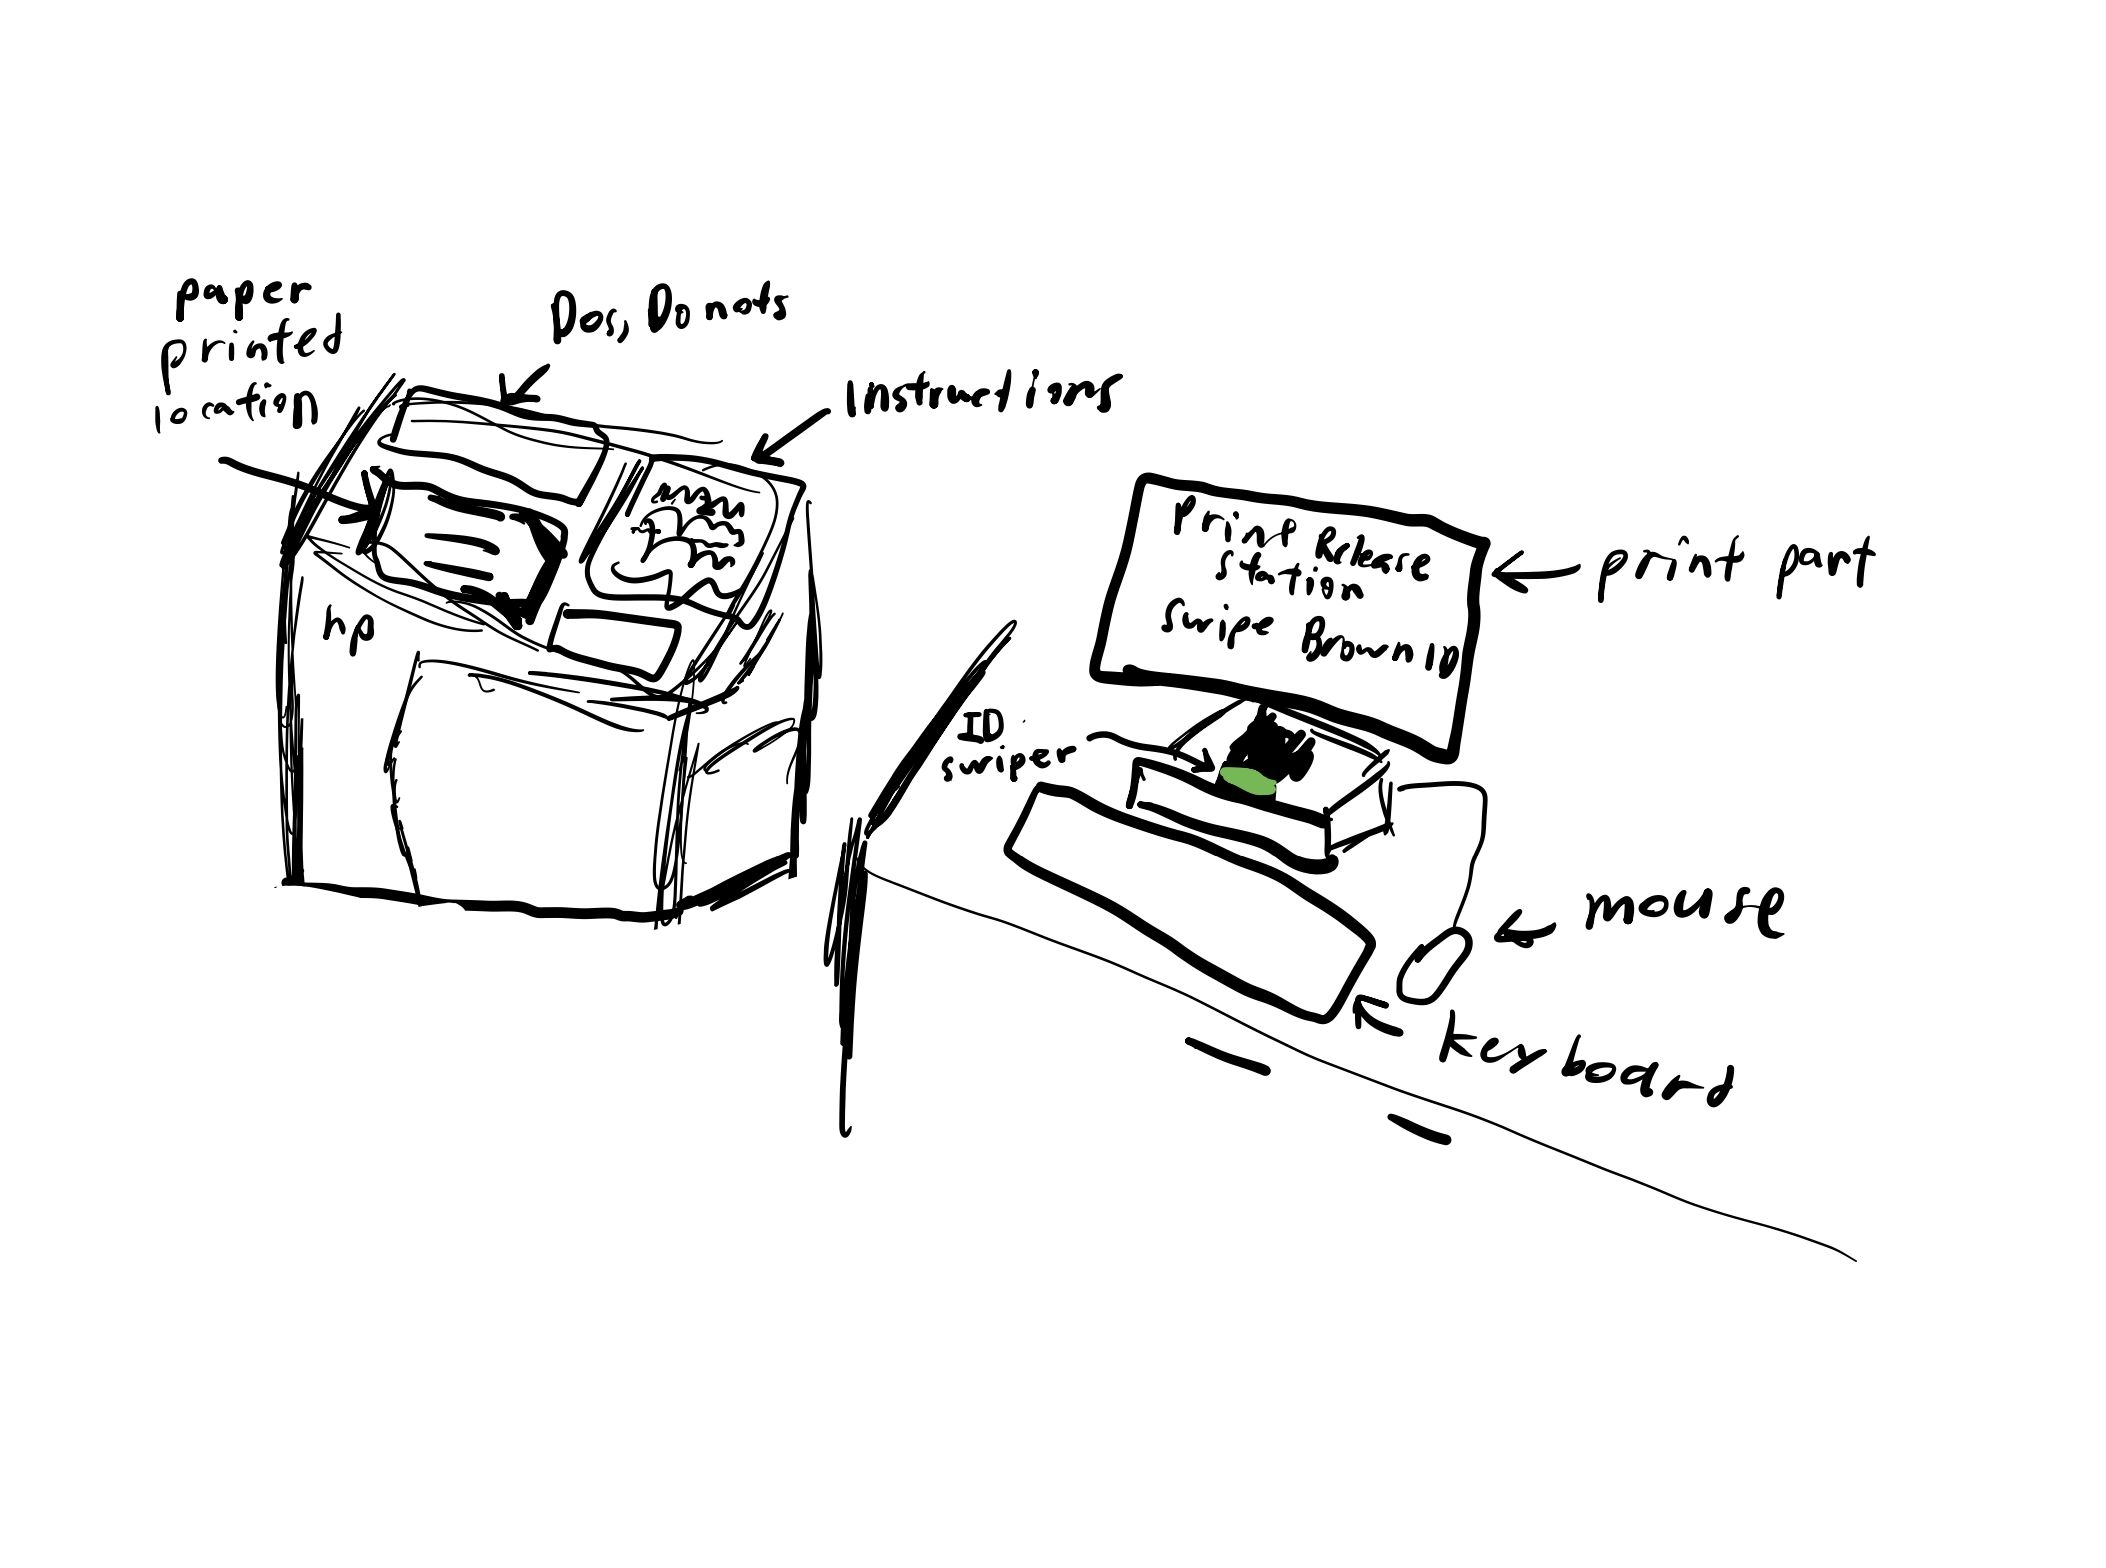 paper
printed
location
Dos, Do nots
Instructions
hp
Print Release
Station
Swipe Brown ID
print part
ID
swiper
mouse
keyboard